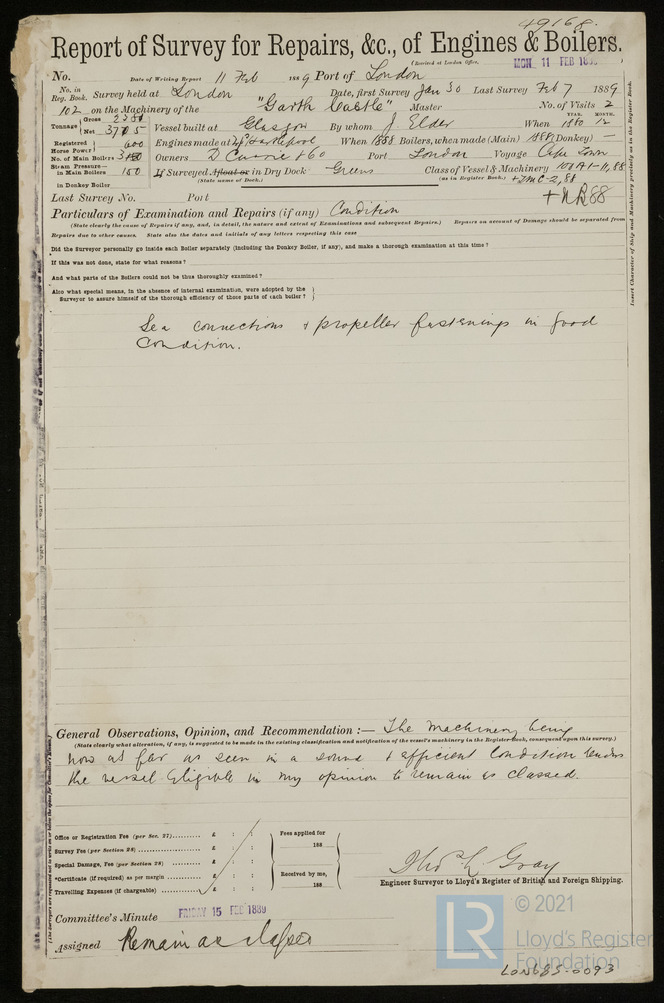 49168.
Report of Survey for Repairs, &c., of Engines & Boilers.
(Received at London Office, MON 11 FEB 188
No. Date of Writing Report 11 Feb 1889 Port of London
No. in Reg. Book. Survey held at London Date, first Survey Jan 30 Last Survey Feb 7 1889
102 on the Machinery of the "Garth Castle" Master No. of Visits 2
Tonnage Gross
Net 3705 Vessel built at Glasgow By whom J. Elder When YEAR. 1880 MONTH. 12
Registered Horse Power 600 Engines made at When 1888 Boilers, when made (Main) 1888 (Donkey) —
No. of Main Boilers 3 Owners D Currie & Co Port London Voyage Cape Town
Steam Pressure— in Main Boilers 150 If Surveyed Afloat or in Dry Dock Greens Class of Vessel & Machinery 100A1-11,88
(State name of Dock.) (as in Register Book.) +LMC-2,88
in Donkey Boiler
Last Survey No. Port + NB88
Particulars of Examination and Repairs (if any) Condition
(State clearly the cause of Repairs if any, and, in detail, the nature and extent of Examinations and subsequent Repairs.) Repairs on account of Damage should be separated from
Repairs due to other causes. State also the dates and initials of any letters respecting this case
Did the Surveyor personally go inside each Boiler separately (including the Donkey Boiler, if any), and make a thorough examination at this time?
If this was not done, state for what reasons?
And what parts of the Boilers could not be thus thoroughly examined?
Also what special means, in the absence of internal examination, were adopted by the
Surveyor to assure himself of the thorough efficiency of those parts of each boiler?
Sea connections & propeller fastenings in good
Condition.
Insert Character of Ship and Machinery precisely as in the Register Book.
General Observations, Opinion, and Recommendation :— The Machinery being
(State clearly what alteration, if any, is suggested to be made in the existing classification and notification of the vessel's machinery in the Register Book, consequent upon this survey.)
now as far as seen in a sound & efficient Condition renders
the vessel Eligible in my opinion to remain as classed.
Office or Registration Fee (per Sec. 27) £ : : Fees applied for
Survey Fee (per Section 28) £ : : 188
Special Damage, Fee (per Section 28) £ : :
*Certificate (if required) as per margin £ : : Received by me,
Travelling Expenses (if chargeable) £ : : 188
Thos L Gray
Engineer Surveyor to Lloyd's Register of British and Foreign Shipping.
Committee's Minute FRIDAY 15 FEB 1889
Assigned Remain as classed
© 2021
LR Lloyd's Register
Foundation
LON685-0093